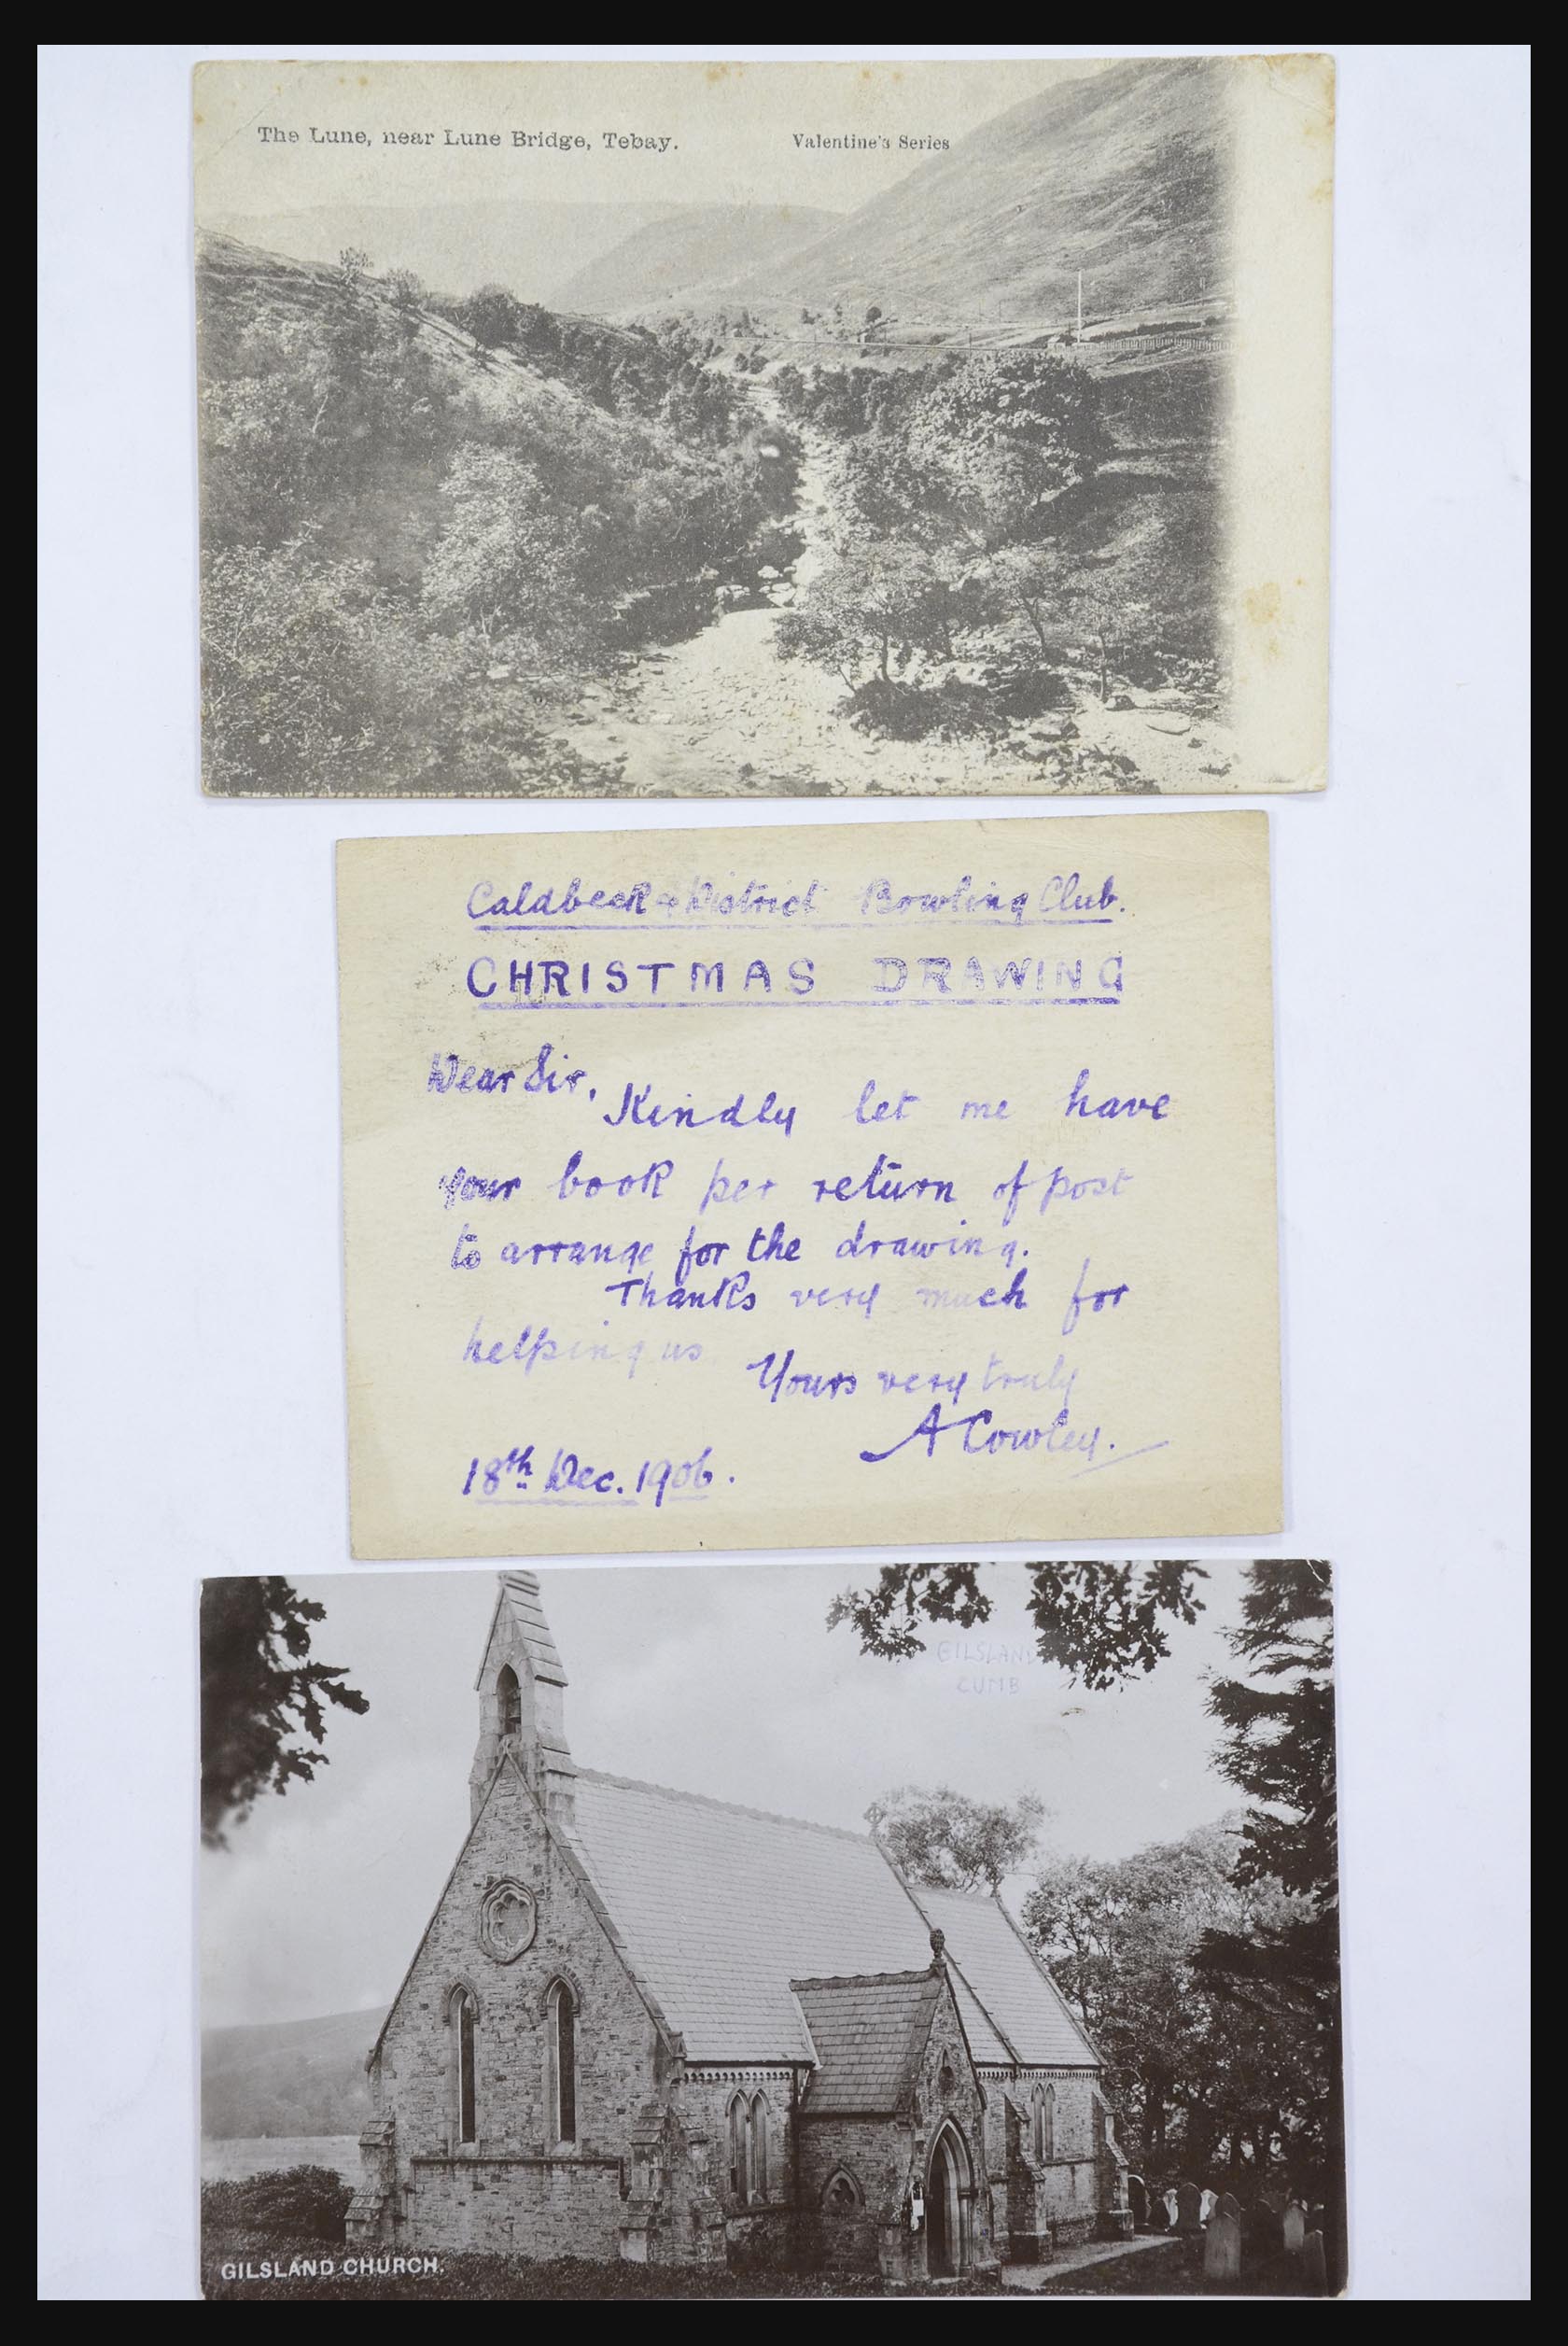 The Lune, near Lune Bridge, Tebay. Valentine's Series
Caldbeck & District Bowling Club.
CHRISTMAS DRAWING
Dear Sir,
Kindly let me have
your book per return of post
to arrange for the drawing.
Thanks very much for
helping us
Yours very truly
A Cowley.
18th Dec. 1906.
GILSLAND
CUMB
GILSLAND CHURCH.